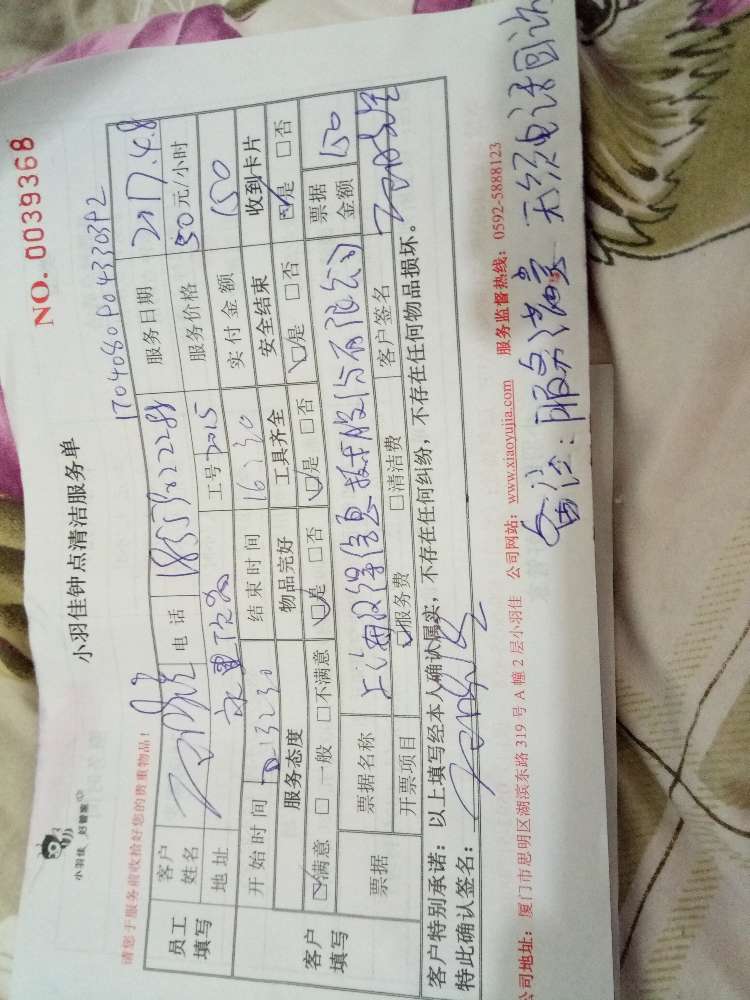 小羽佳 好管家
小羽佳钟点清洁服务单
NO. 0039368
请您于服务前收拾好您的贵重物品!
170408090433039 2
员工填写 客户姓名 电话 服务日期 2017.4.8
地址 工号 2015 服务价格 50 元/小时
开始时间 13:30 结束时间 16:30 实付金额 150
客户填写 服务态度 物品完好 工具齐全 安全结束 收到卡片
☑满意 □一般 □不满意 ☑是 □否 ☑是 □否 ☑是 □否 ☑是 □否
票据 票据名称 上海汉得信息技术股份有限公司 票据金额 150
开票项目 ☑服务费 □清洁费 客户签名
客户特别承诺:以上填写经本人确认属实,不存在任何纠纷,不存在任何物品损坏。
特此确认签名:
公司地址:厦门市思明区湖滨东路 319 号 A 幢 2 层小羽佳 公司网站:www.xiaoyujia.com 服务监督热线:0592-5888123
备注:服务满意 无须电话回访